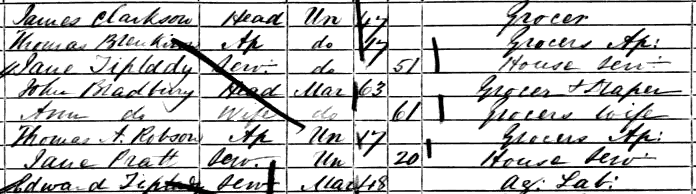 James Clarkson Head Un 47 Grocer
Thomas Ap do 17 Grocers Ap:
Jane Tipladdy Serv. do 51 House Serv
John Bradbury Head Mar 63 Grocer & Draper
Ann do Wife do 61 Grocers Wife
Thomas A. Robson Ap Un 17 Grocers Ap:
Jane Pratt Serv. Un 20 House Serv
Edward Serv Mar 48 Ag. Lab: